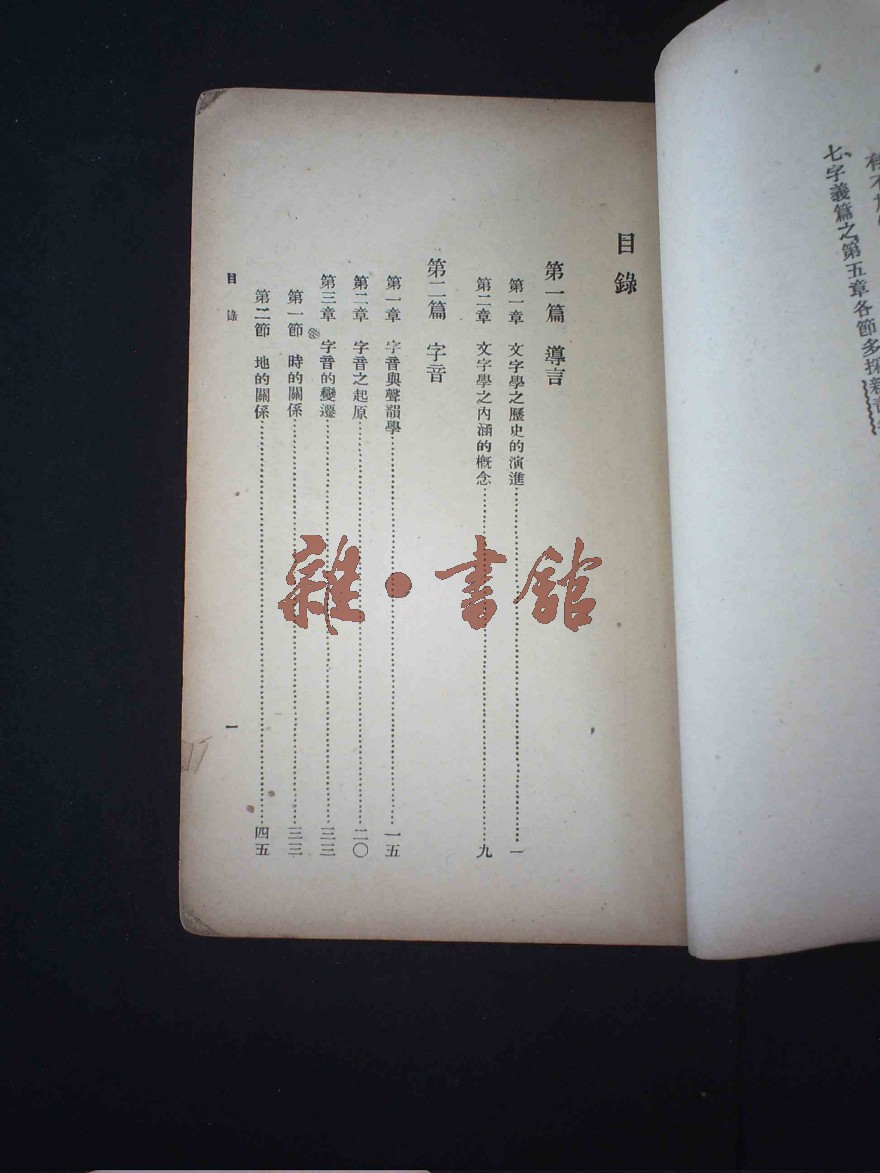 七、字義篇之第五章各節多採
目錄
第一篇 導言
第一章 文字學之歷史的演進……一
第二章 文字學之內涵的概念……九
第二篇 字音
第一章 字音與聲韻學……一五
第二章 字音之起原……二〇
第三章 字音的變遷……三三
第一節 時的關係……三三
第二節 地的關係……四五
目錄 一
雜·書館